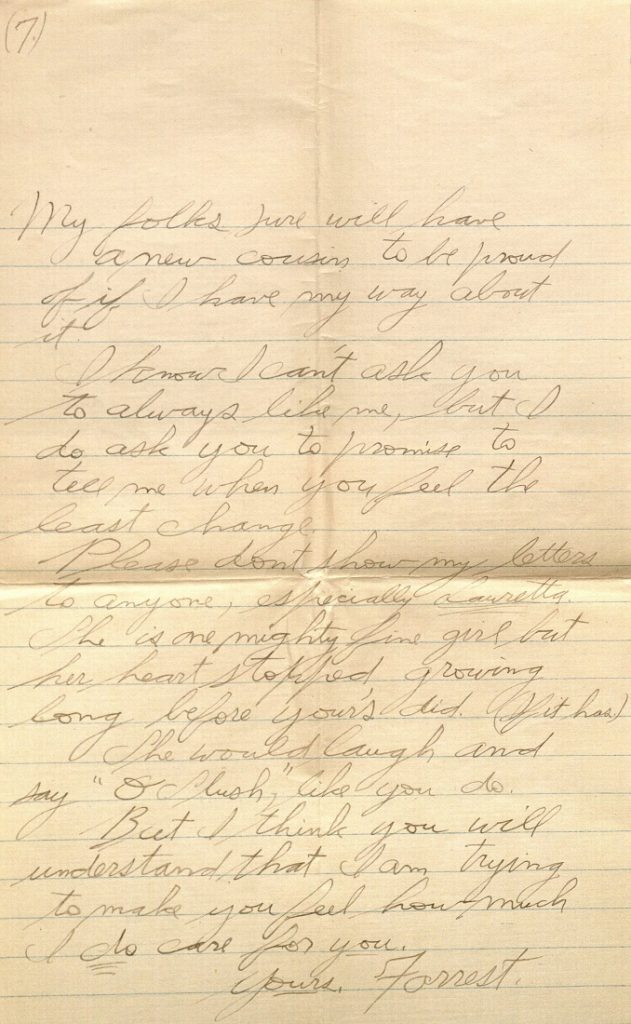 (7.)
My folks sure will have
a new cousin to be proud
of if I have my way about
it.
I know I can't ask you
to always like me, but I
do ask you to promise to
tell me when you feel the
least change.
Please dont show my letters
to anyone, especially Lauretta.
She is one mighty fine girl but
her heart stopped growing
long before your's did. (If it has)
She would laugh and
say "O Slush," like you do.
But I think you will
understand that I am trying
to make you feel how much
I do care for you.
Yours. Forrest.